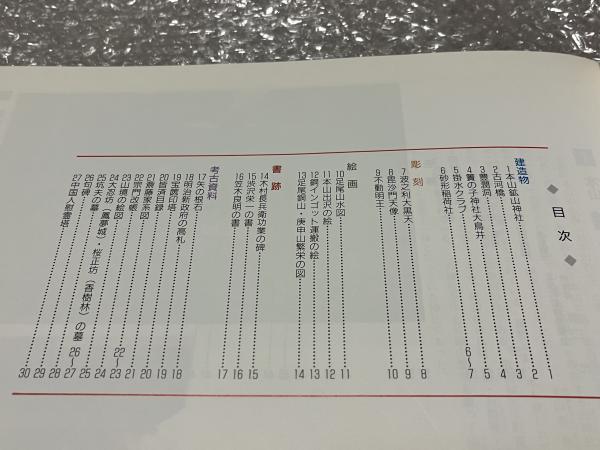 ◆ 目次 ◆
建造物
1本山鉱山神社……1
2古河橋……2
3豊潤洞……3
4簀の子神社大鳥井……4
5掛水クラブ……5
6砂形稲荷社……6~7
彫刻
7波之利大黒天……8
8毘沙門天像……9
9不動明王……10
絵画
10足尾山水図……11
11本山出沢の絵……12
12銅インゴット運搬の絵……13
13足尾銅山・庚申山繁栄の図……14
書跡
14木村長兵衛功業の碑……15
15渋沢栄一の書……16
16笠木良明の書……17
考古資料
17矢の根石……18
18明治新政府の高札……19
19宝篋印塔……20
20皆済目録……21
21斎藤家系図……22~23
22宗門改帳……24
23山境の絵図……25
24大忍坊（鳳夢城）・桜正坊（香樹林）の墓……26~27
25坑夫の墓……28
26句碑……29
27中国人慰霊塔……30